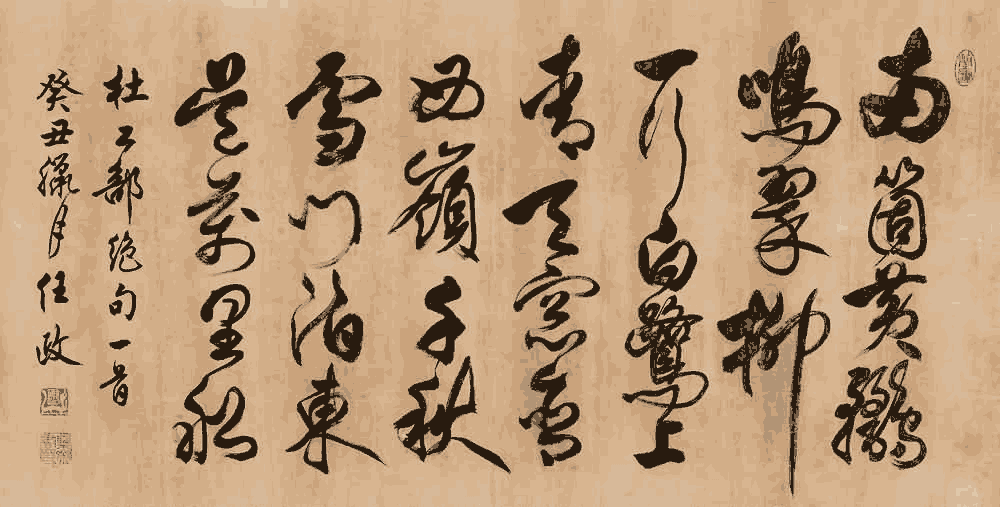 兩箇黄鸝
鳴翠柳
一行白鷺上
青天窓含
西嶺千秋
雪門泊東
吴萬里船
杜工部絶句一首
癸丑臘月任政